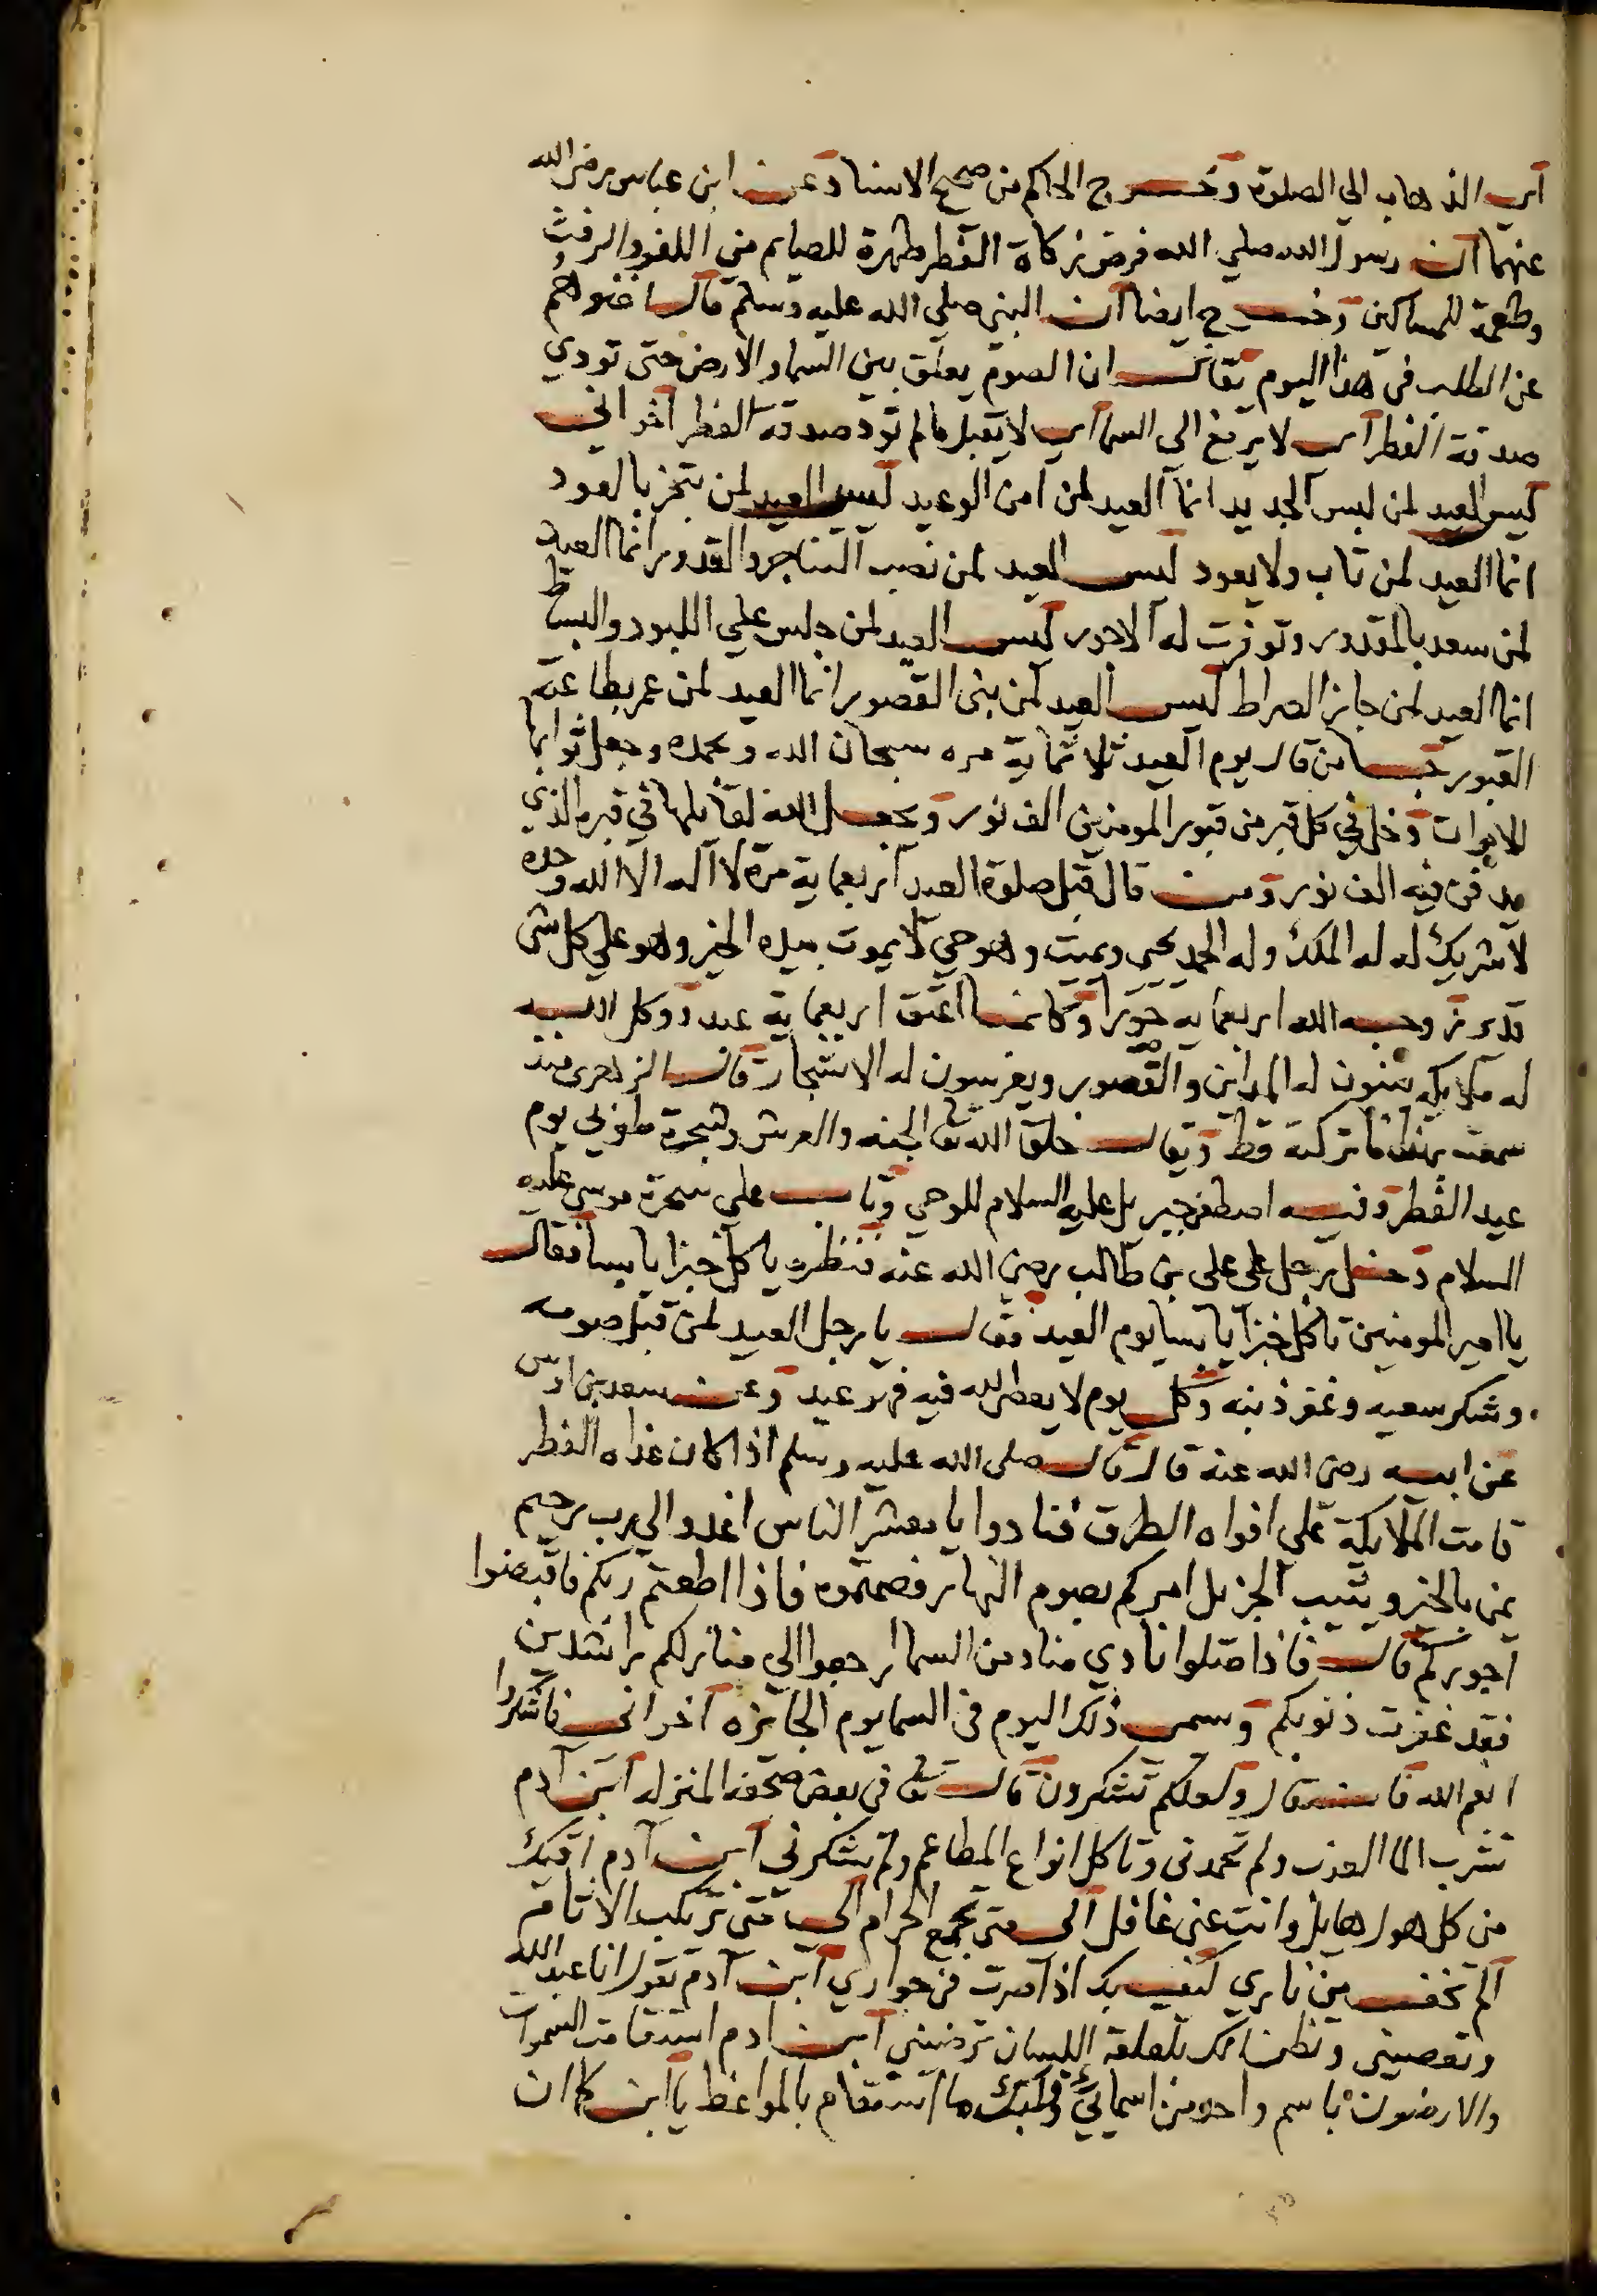 اي الذهاب الي الصلوة وخرج الحاكم من صحيح الاسناد عن ابن عباس رضي الله
عنهما ان رسول الله صلي الله فرض زكاة الفطر طهرة للصايم من اللغو والرفث
وطعمة للمساكين وخرج ايضا ان النبي صلي الله عليه وسلم قال اغنوهم
عن الطلب في هذا اليوم يقال ان الصوم يعلق بين السما والارض حتى تودي
صدقة الفطر اي لا يرفع الى السما اي لا يقبل مالم تود صدقة الفطر اخواني
ليس العيد لمن لبس الجديد انما العيد لمن امن الوعيد ليس العيد لمن تبخر بالعود
انما العيد لمن تاب ولا يعود ليس العيد لمن نصب الطناجر والقدور انما العيد
لمن سعد بالمقدور وتوفرت له الاجور ليس العيد لمن جلس علي اللبود والبساط
انما العيد لمن جاز الصراط ليس العيد لمن بنى القصور انما العيد لمن عمر بطاعته
القبور من قال يوم العيد ثلاثماية مره سبحان الله وبحمده وجعل ثوابها
للاموات دخل في كل قبر من قبور المومنين الف نور ويجعل الله لقايلها في قبره الذي
يدفن فيه الف نور ومن قال قبل صلوة العيد اربعماية مرة لا اله الا الله وحده
لا شريك له له الملك وله الحمد يحيى ويميت وهو حي لا يموت بيده الخير وهو علي كل شي
قدير زوجه الله اربعماية حورا وكانما اعتق اربعماية عبد ووكل الله
له ملايكه يبنون له المداين والقصور ويغرسون له الاشجار قال الزهري منذ
سمعته ما تركته قط ويقال خلق الله تعا الجنه والعرش وشجرة طوبي يوم
عيد الفطر وفيه اصطفى جبريل عليه السلام للوحي وتاب علي سحرة موسى عليه
السلام دخل رجل على علي بن طالب رضي الله عنه فنظره ياكل خبزا يابسا فقال
يا امير المومنين تاكل خبزا يابسا يوم العيد فقال يا رجل العيد لمن قبل صومه
وشكر سعيه وغفر ذنبه وكل يوم لا يعصى الله فيه فهو عيد وعن سعد بن اوس
عن ابيه رضي الله عنه قال قال صلى الله عليه وسلم اذا كان غداه الفطر
قامت الملايكة علي افواه الطرق فنادوا يا معشر الناس اغدوا الي رب رحيم
يمن بالخير ويثيب الجزيل امركم بصوم النهار فصمتموه فاذا اطعتم ربكم فاقبضوا
اجوركم قال فاذا صلوا نادي مناد من السما ارجعوا الي منازلكم راشدين
فقد غفرت ذنوبكم وسمى ذلك اليوم في السما يوم الجايزه اخواني فاشكروا
انعم الله ولعلكم تشكرون قال تعا في بعض صحفه المنزله ابن آدم
تشرب الما العذب ولم تحمدني وتاكل انواع المطاعم ولم تشكرني ابن آدم اقيك
من كل هول هايل وانت عني غافل الى متى تجمع الحرام الي متى تركب الاثام
الم تخف من ناري كيف بك اذا صرت في جواري ابن آدم تقول انا عبد الله
وتعصيني وتظن انك بلقلقة اللسان ترضيني ابن ادم استقامت السموات
والارضون باسم واحد من اسمايي وقلبك ما استقام بالمواعظ يا ابن كما ان